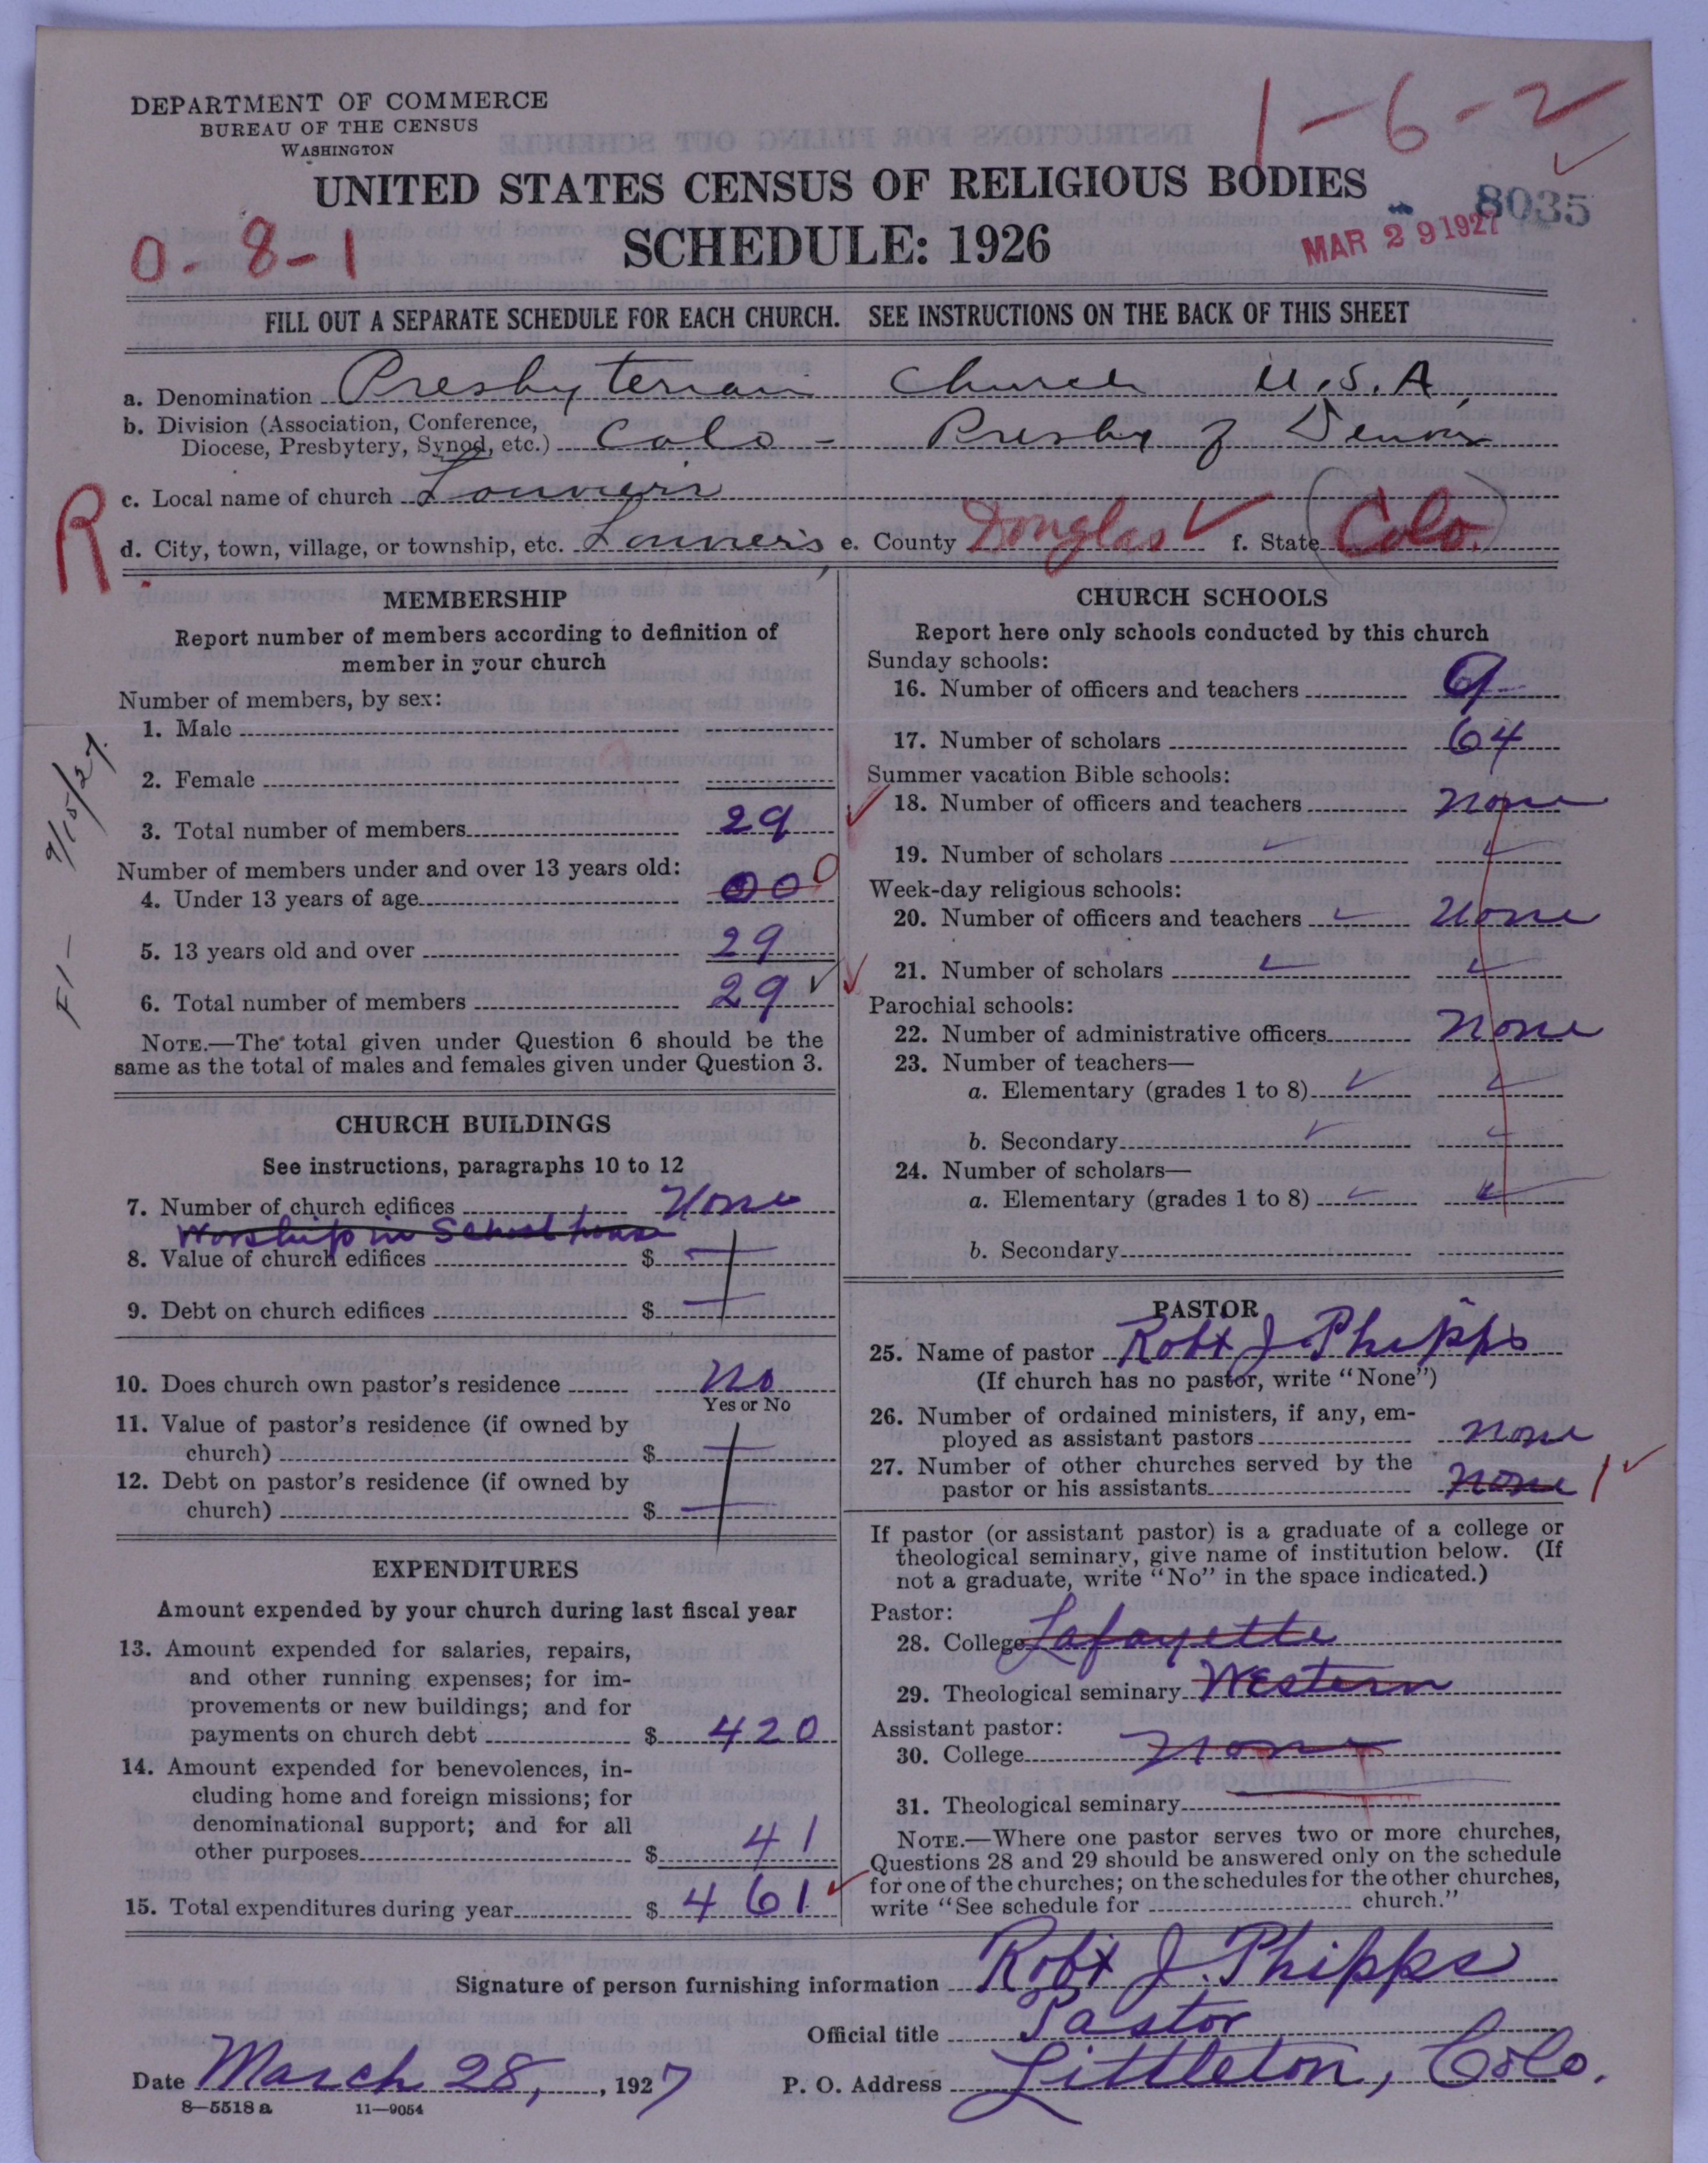 DEPARTMENT OF COMMERCE
BUREAU OF THE CENSUS
WASHINGTON
1-6-2
UNITED STATES CENSUS OF RELIGIOUS BODIES
8035
0-8-1
SCHEDULE: 1926
MAR 29 1927
FILL OUT A SEPARATE SCHEDULE FOR EACH CHURCH. SEE INSTRUCTIONS ON THE BACK OF THIS SHEET
a. Denomination Presbyterian Church U.S.A.
b. Division (Association, Conference,
Diocese, Presbytery, Synod, etc.) Colo - Presby of Denver
c. Local name of church Louviers
R
d. City, town, village, or township, etc. Louviers e. County Douglas f. State Colo.
MEMBERSHIP
Report number of members according to definition of
member in your church
Number of members, by sex:
1. Male
2. Female
3. Total number of members 29
Number of members under and over 13 years old:
4. Under 13 years of age 00 0
5. 13 years old and over 29
6. Total number of members 29
NOTE.—The total given under Question 6 should be the
same as the total of males and females given under Question 3.
9/15/27
CHURCH BUILDINGS
See instructions, paragraphs 10 to 12
7. Number of church edifices None
Worship in School house
8. Value of church edifices $
9. Debt on church edifices $
10. Does church own pastor's residence No
Yes or No
11. Value of pastor's residence (if owned by
church) $
12. Debt on pastor's residence (if owned by
church) $
EXPENDITURES
Amount expended by your church during last fiscal year
13. Amount expended for salaries, repairs,
and other running expenses; for im-
provements or new buildings; and for
payments on church debt $ 420
14. Amount expended for benevolences, in-
cluding home and foreign missions; for
denominational support; and for all
other purposes $ 41
15. Total expenditures during year $ 461
CHURCH SCHOOLS
Report here only schools conducted by this church
Sunday schools:
16. Number of officers and teachers 9
17. Number of scholars 64
Summer vacation Bible schools:
18. Number of officers and teachers None
19. Number of scholars
Week-day religious schools:
20. Number of officers and teachers None
21. Number of scholars
Parochial schools:
22. Number of administrative officers None
23. Number of teachers—
a. Elementary (grades 1 to 8)
b. Secondary
24. Number of scholars—
a. Elementary (grades 1 to 8)
b. Secondary
PASTOR
25. Name of pastor Robt J. Phipps
(If church has no pastor, write "None")
26. Number of ordained ministers, if any, em-
ployed as assistant pastors None
27. Number of other churches served by the
pastor or his assistants None 1
If pastor (or assistant pastor) is a graduate of a college or
theological seminary, give name of institution below. (If
not a graduate, write "No" in the space indicated.)
Pastor:
28. College Lafayette
29. Theological seminary Western
Assistant pastor:
30. College None
31. Theological seminary
NOTE.—Where one pastor serves two or more churches,
Questions 28 and 29 should be answered only on the schedule
for one of the churches; on the schedules for the other churches,
write "See schedule for church."
Signature of person furnishing information Robt J. Phipps
Official title Pastor
Date March 28, , 1927 P. O. Address Littleton, Colo.
8—5518 a 11—9054